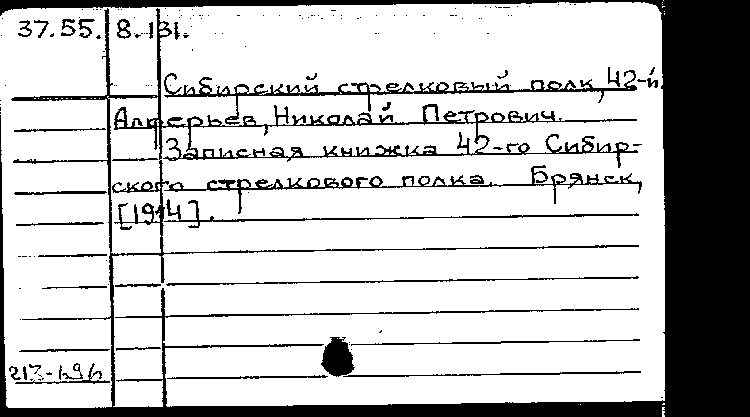 37.55. 8.131.
Сибирский стрелковый полк, 42-й.
Алферьев, Николай Петрович.
Записная книжка 42-го Сибир-
ского стрелкового полка. Брянск,
[1914].